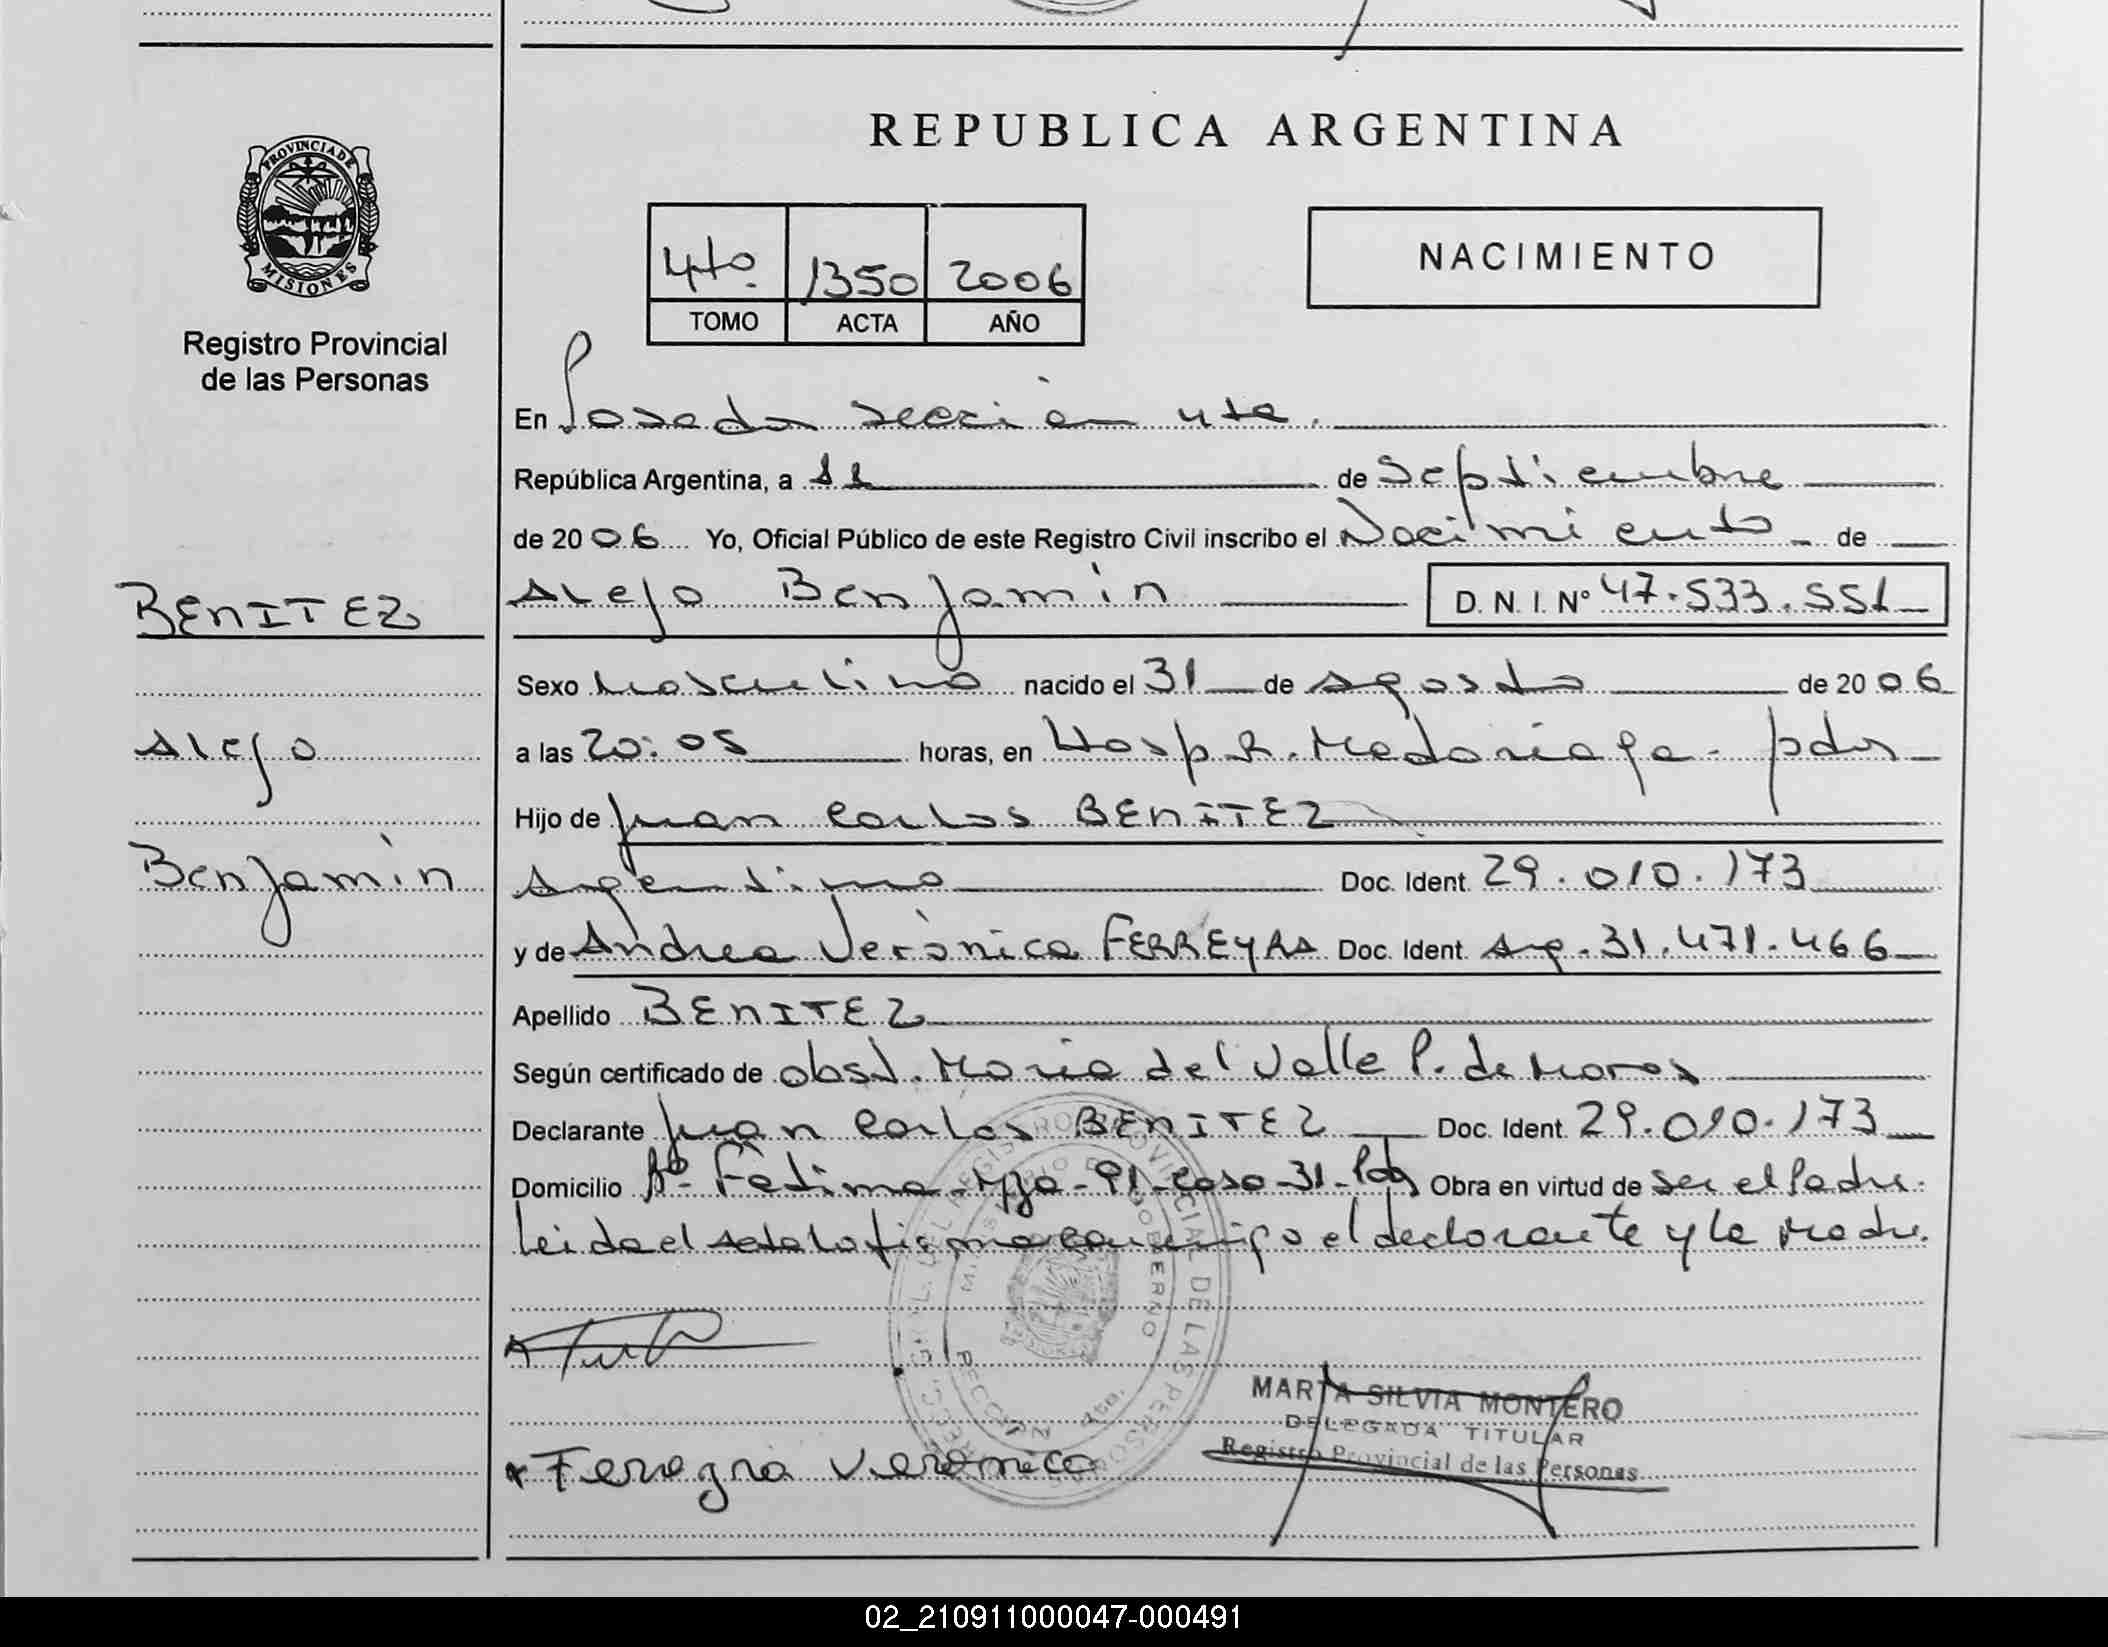 REPUBLICA ARGENTINA
PROVINCIA DE
MISIONES
Registro Provincial
de las Personas
4to. 1350 2006
TOMO ACTA AÑO
NACIMIENTO
En Posadas sección 4ta.
República Argentina, a 11 de Septiembre
de 2006 Yo, Oficial Público de este Registro Civil inscribo el Nacimiento de
BENITEZ
Alejo Benjamin D. N. I. Nº 47.533.551
Sexo Masculino nacido el 31 de Agosto de 2006
Alejo
a las 20:05 horas, en Hosp. R. Madariaga - pdas
Hijo de Juan Carlos BENITEZ
Benjamin
Argentino Doc. Ident. 29.010.173
y de Andrea Verónica FERREYRA Doc. Ident. Arg. 31.471.466
Apellido BENITEZ
Según certificado de obst. Maria del Valle P. de Moros
Declarante Juan Carlos BENITEZ Doc. Ident. 29.010.173
Domicilio Bº Fátima - Mza - 91 - Casa - 31 - Pdas Obra en virtud de ser el Padre.
Leida el acta la firma conmigo el declarante y la Madre.
REGISTRO PROVINCIAL DE LAS PERSONAS
GOBIERNO
MARTA SILVIA MONTERO
DELEGADA TITULAR
Registro Provincial de las Personas
Ferreyra Verónica
02_210911000047-000491